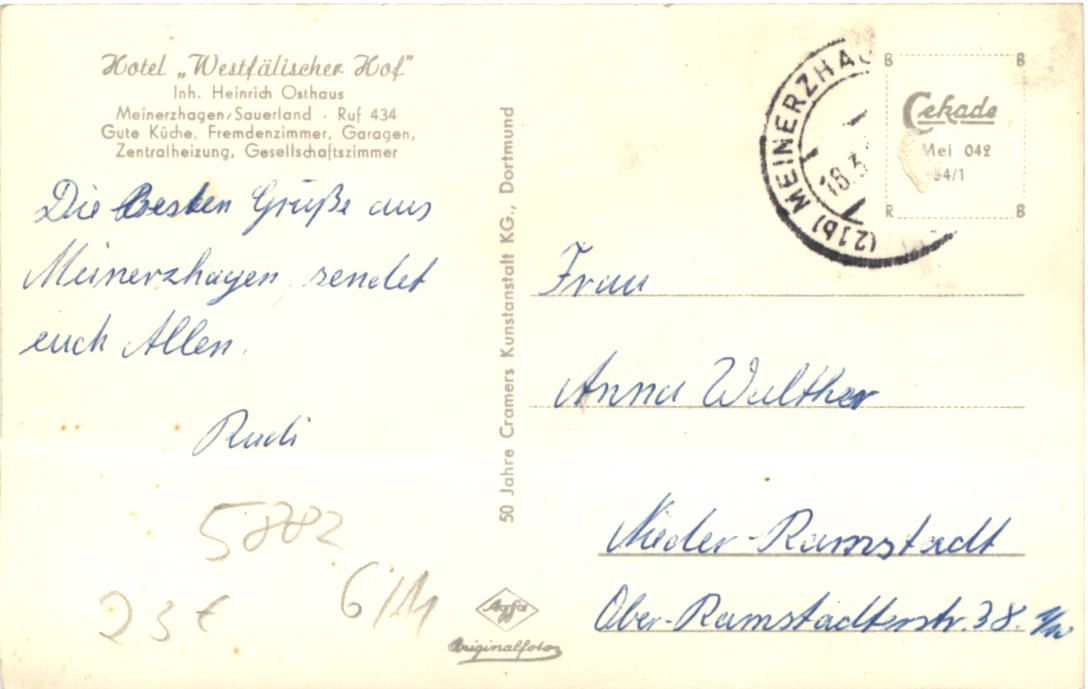 Hotel „Westfälischer Hof"
Inh. Heinrich Osthaus
Meinerzhagen/Sauerland · Ruf 434
Gute Küche, Fremdenzimmer, Garagen,
Zentralheizung, Gesellschaftszimmer
Die Besten Grüße aus
Meinerzhagen sendet
euch Allen.
Rudi
5882
23 €
6/11
50 Jahre Cramers Kunstanstalt KG., Dortmund
Agfa
Originalfoto
(21b) MEINERZHA
18.3.
B B
Cekade
Mei 042
94/1
R B
Frau
Anna Walther
Nieder-Ramstadt
Ober-Ramstadterstr. 38.